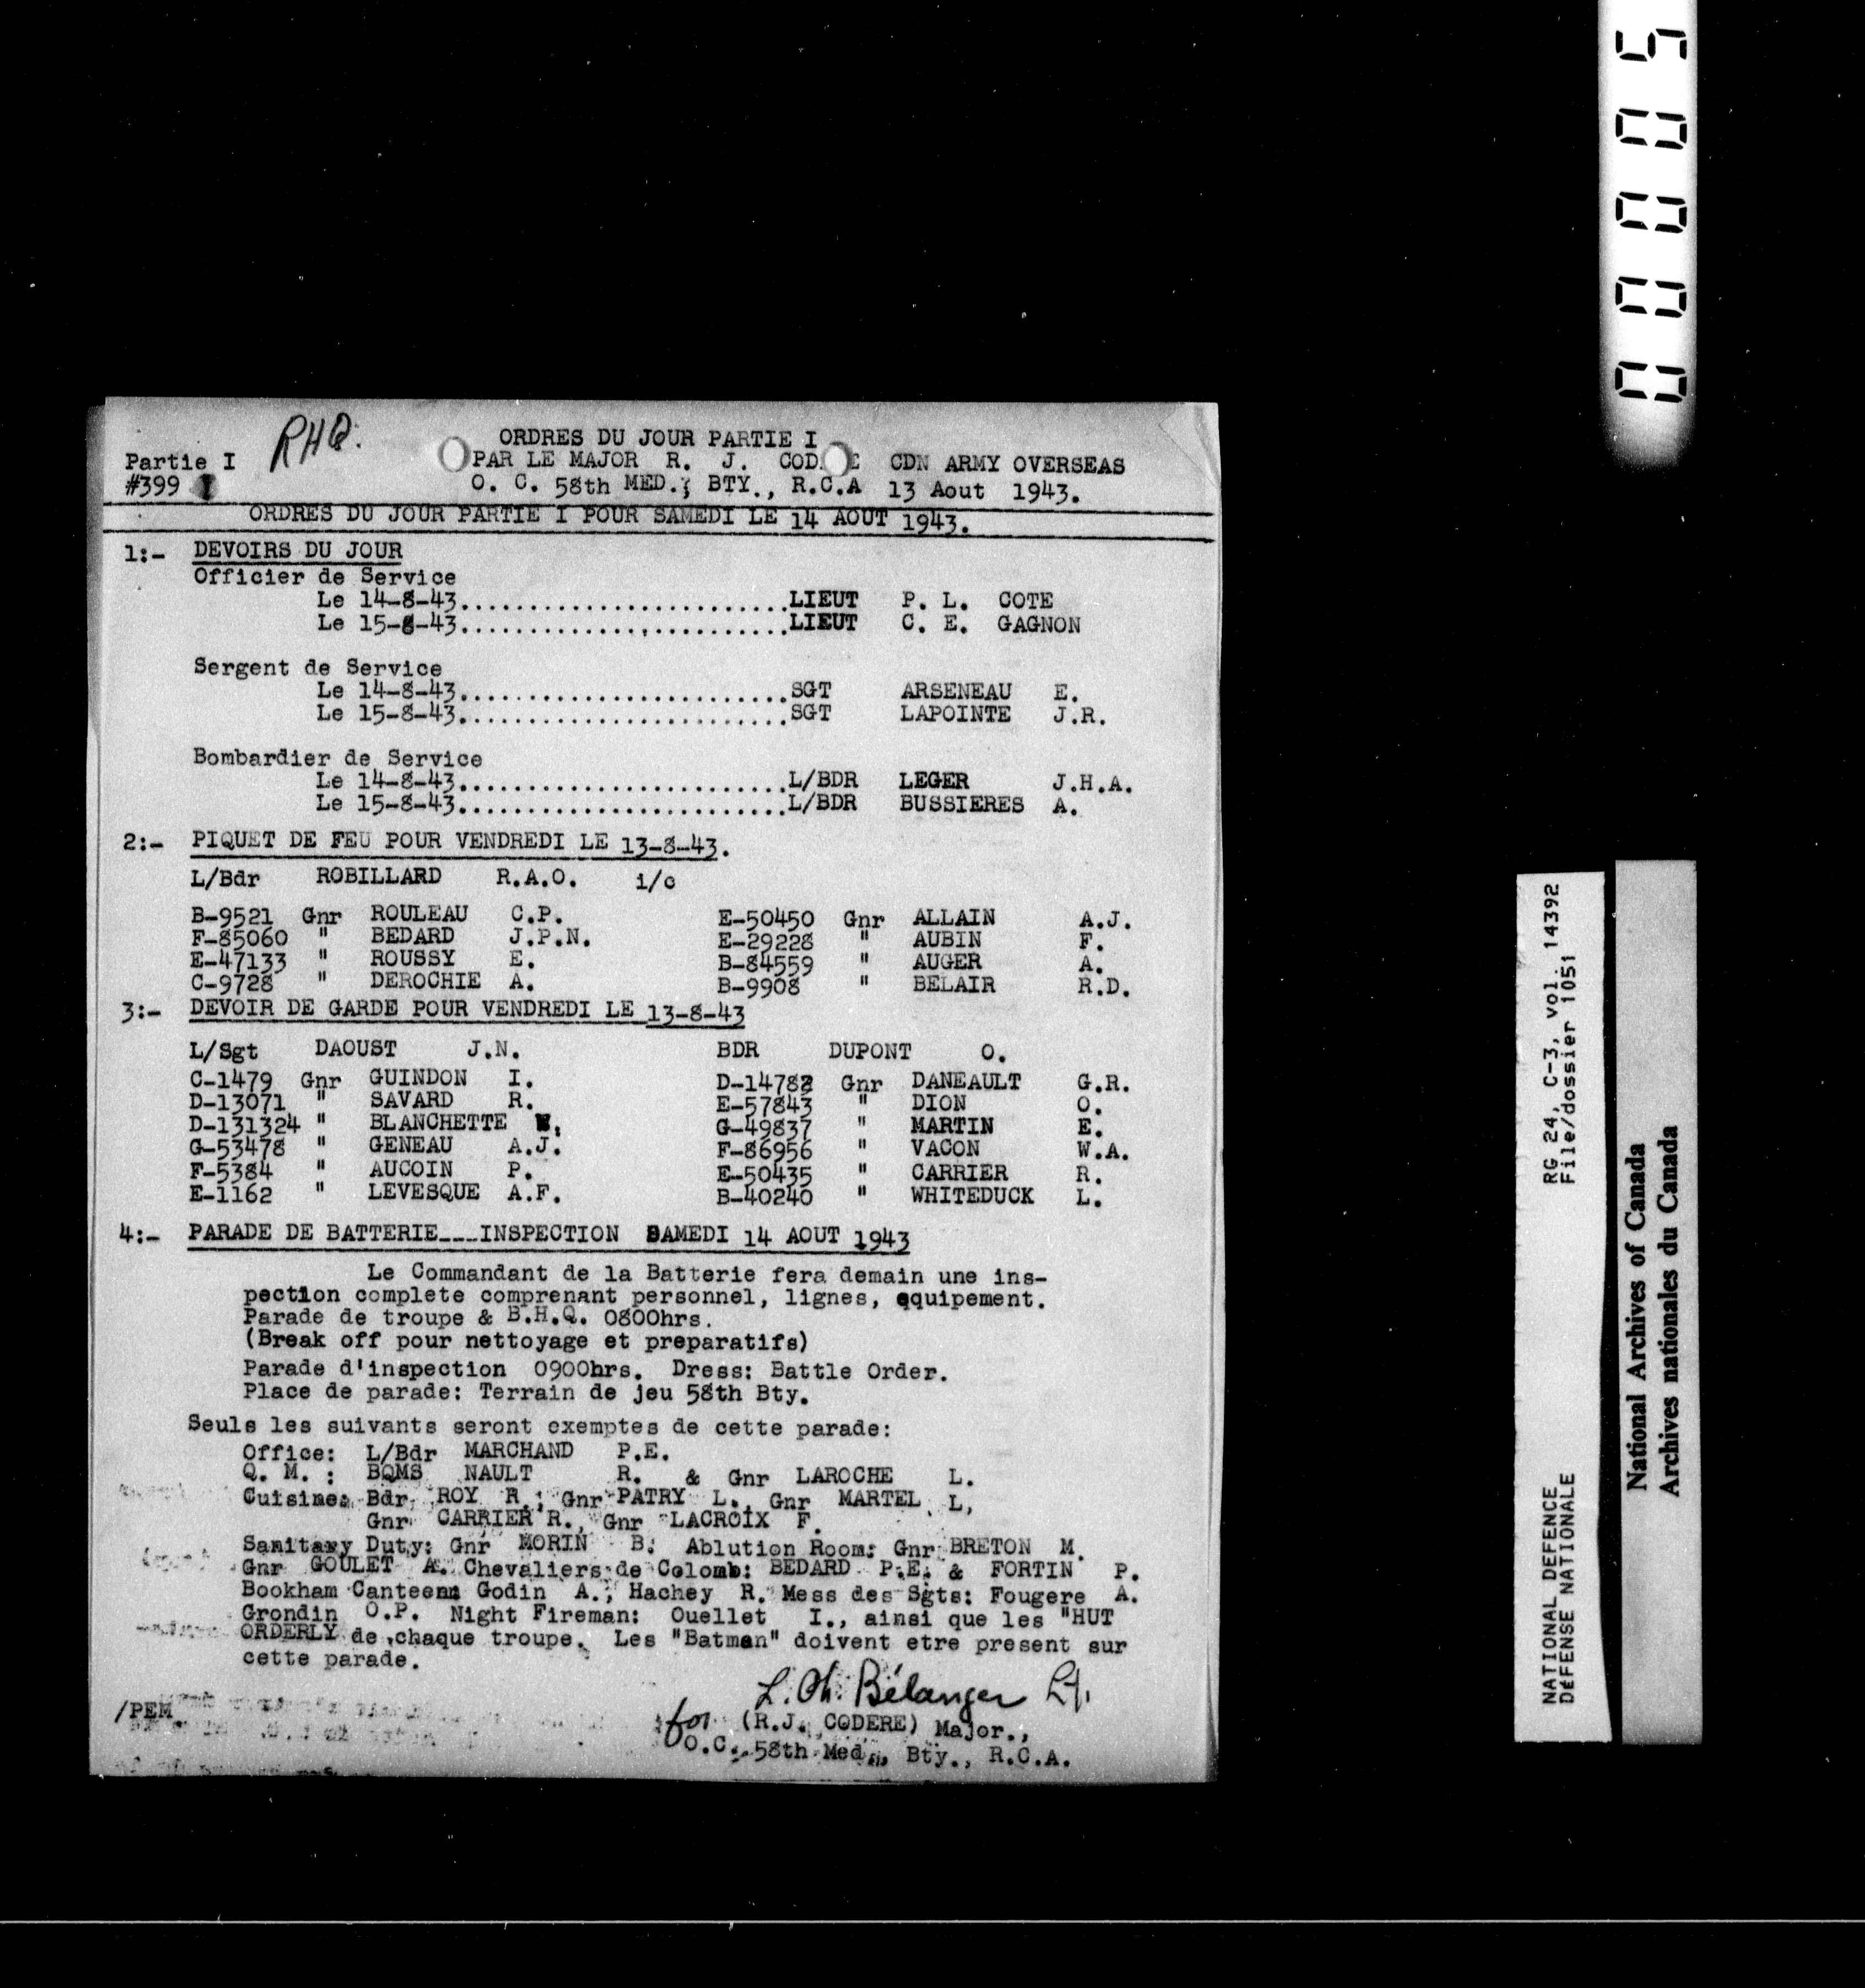 RHQ.
ORDRES DU JOUR PARTIE I
Partie I PAR LE MAJOR R. J. COD E CDN ARMY OVERSEAS
#399 O. C. 58th MED., BTY., R.C.A 13 Aout 1943.
ORDRES DU JOUR PARTIE I POUR SAMEDI LE 14 AOUT 1943.
1:- DEVOIRS DU JOUR
Officier de Service
Le 14-8-43........................LIEUT P. L. COTE
Le 15-8-43........................LIEUT C. E. GAGNON
Sergent de Service
Le 14-8-43........................SGT ARSENEAU E.
Le 15-8-43........................SGT LAPOINTE J.R.
Bombardier de Service
Le 14-8-43........................L/BDR LEGER J.H.A.
Le 15-8-43........................L/BDR BUSSIERES A.
2:- PIQUET DE FEU POUR VENDREDI LE 13-8-43.
L/Bdr ROBILLARD R.A.O. i/c
B-9521 Gnr ROULEAU C.P. E-50450 Gnr ALLAIN A.J.
F-85060 " BEDARD J.P.N. E-29228 " AUBIN F.
E-47133 " ROUSSY E. B-84559 " AUGER A.
C-9728 " DEROCHIE A. B-9908 " BELAIR R.D.
3:- DEVOIR DE GARDE POUR VENDREDI LE 13-8-43
L/Sgt DAOUST J.N. BDR DUPONT O.
C-1479 Gnr GUINDON I. D-14782 Gnr DANEAULT G.R.
D-13071 " SAVARD R. E-57843 " DION O.
D-131324 " BLANCHETTE G-49837 " MARTIN E.
G-53478 " GENEAU A.J. F-86956 " VACON W.A.
F-5384 " AUCOIN P. E-50435 " CARRIER R.
E-1162 " LEVESQUE A.F. B-40240 " WHITEDUCK L.
4:- PARADE DE BATTERIE___INSPECTION SAMEDI 14 AOUT 1943
Le Commandant de la Batterie fera demain une ins-
pection complete comprenant personnel, lignes, equipement.
Parade de troupe & B.H.Q. 0800hrs.
(Break off pour nettoyage et preparatifs)
Parade d'inspection 0900hrs. Dress: Battle Order.
Place de parade: Terrain de jeu 58th Bty.
Seuls les suivants seront exemptes de cette parade:
Office: L/Bdr MARCHAND P.E.
Q. M. : BQMS NAULT R. & Gnr LAROCHE L.
Cuisine: Bdr ROY R.; Gnr PATRY L., Gnr MARTEL L,
Gnr CARRIER R., Gnr LACROIX F.
Sanitary Duty: Gnr MORIN B. Ablution Room: Gnr BRETON M.
Gnr GOULET A. Chevaliers de Colomb: BEDARD P.E. & FORTIN P.
Bookham Canteen: Godin A., Hachey R. Mess des Sgts: Fougere A.
Grondin O.P. Night Fireman: Ouellet I., ainsi que les "HUT
ORDERLY de chaque troupe. Les "Batman" doivent etre present sur
cette parade.
L. Ch. Bélanger Lt.
/PEM for (R.J. CODERE) Major.,
O.C. 58th Med., Bty., R.C.A.
00005
RG 24, C-3, vol. 14392
File/dossier 1051
NATIONAL DEFENCE
DÉFENSE NATIONALE
National Archives of Canada
Archives nationales du Canada